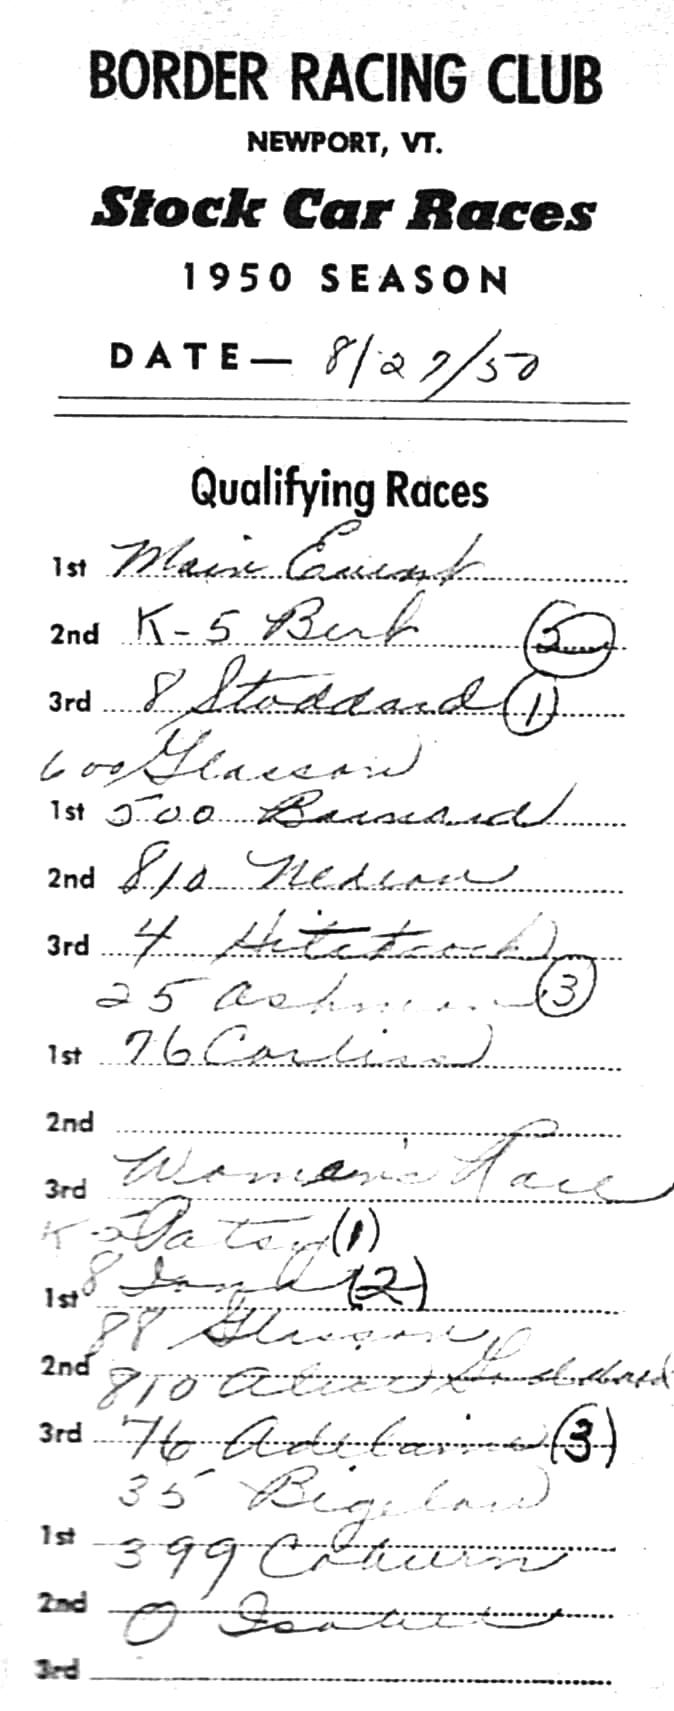 BORDER RACING CLUB
NEWPORT, VT.
Stock Car Races
1950 SEASON
DATE— 8/27/50
Qualifying Races
1st Main Event
2nd K-5 Bert 5
3rd 8 Stoddard 1
600 Glasson
1st 500 Barnard
2nd 810
3rd 4 Hitchcock
25 Ashman 3
1st 76 Corliss
2nd
Women's Race
3rd
K-5 Patsy (1)
1st 8 (2)
88 Glasson
2nd 810 Alice Goddard
3rd 76 Adelaine (3)
35 Bigelow
1st 399 Coburn
2nd 0 Isabel
3rd